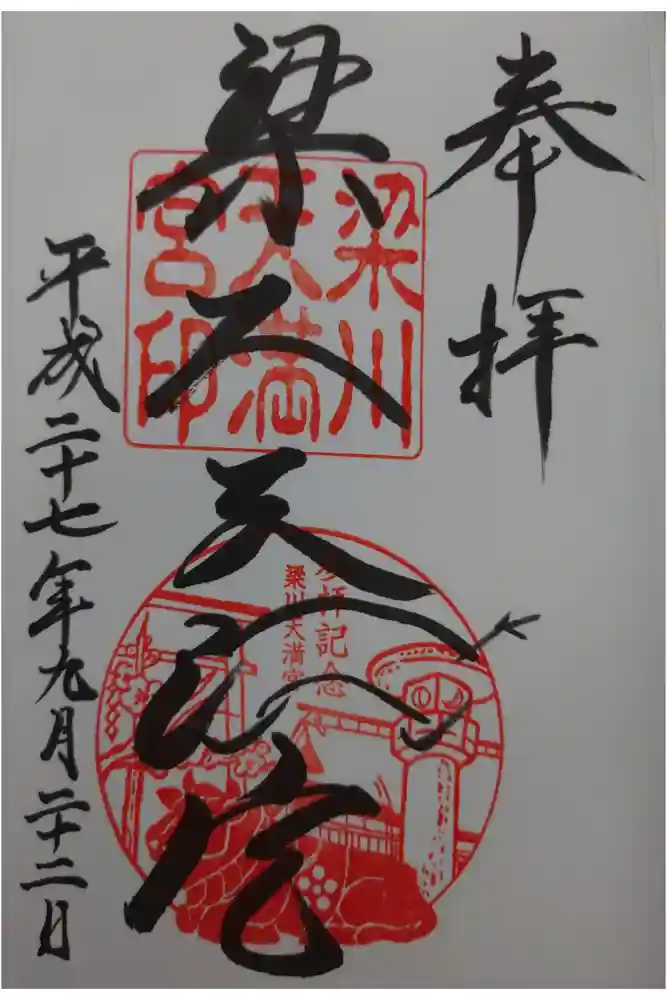 奉拝
梁川天満宮
梁川
天満
宮印
参拝記念
梁川天満宮
平成二十七年九月二十二日